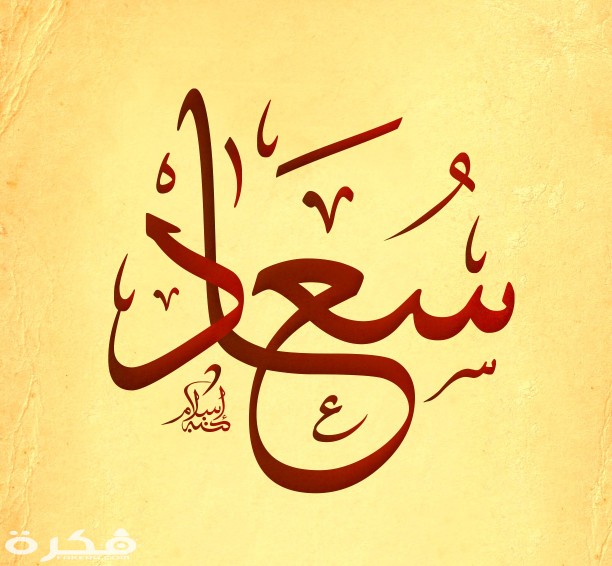 سُعَاد
كتبه إسلام
فكرة